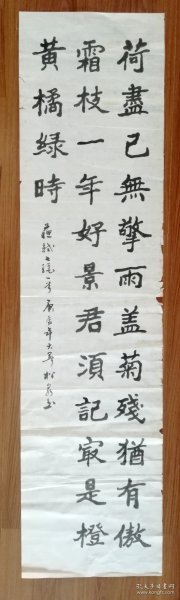 荷盡已無擎雨盖菊殘猶有傲
霜枝一年好景君須記冣是橙
黄橘緑時